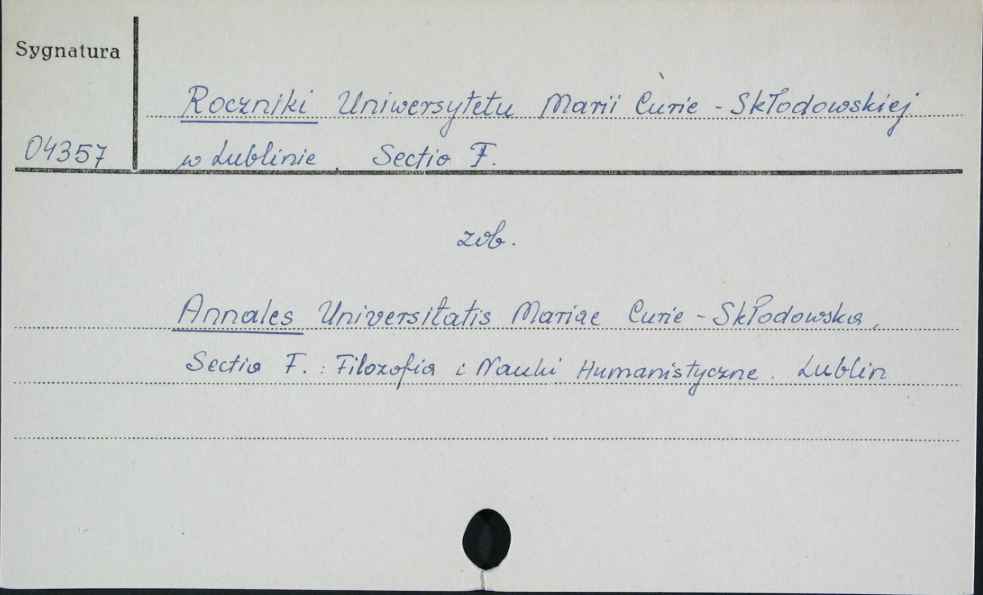 Sygnatura
Roczniki Uniwersytetu Marii Curie - Skłodowskiej
04357
w Lublinie. Sectio F.
zob.
Annales Universitatis Mariae Curie - Skłodowska,
Sectio F. : Filozofia i Nauki Humanistyczne. Lublin